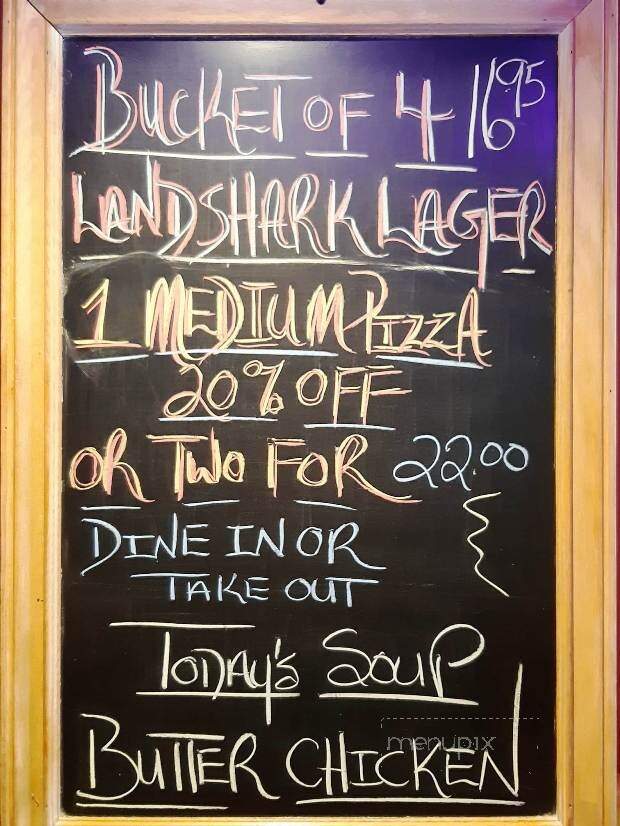 BUCKET OF 4 16.95
LANDSHARK LAGER
1 MEDIUM PIZZA
20% OFF
OR TWO FOR 22.00
DINE IN OR
TAKE OUT
TODAY'S SOUP
menupix
BUTTER CHICKEN